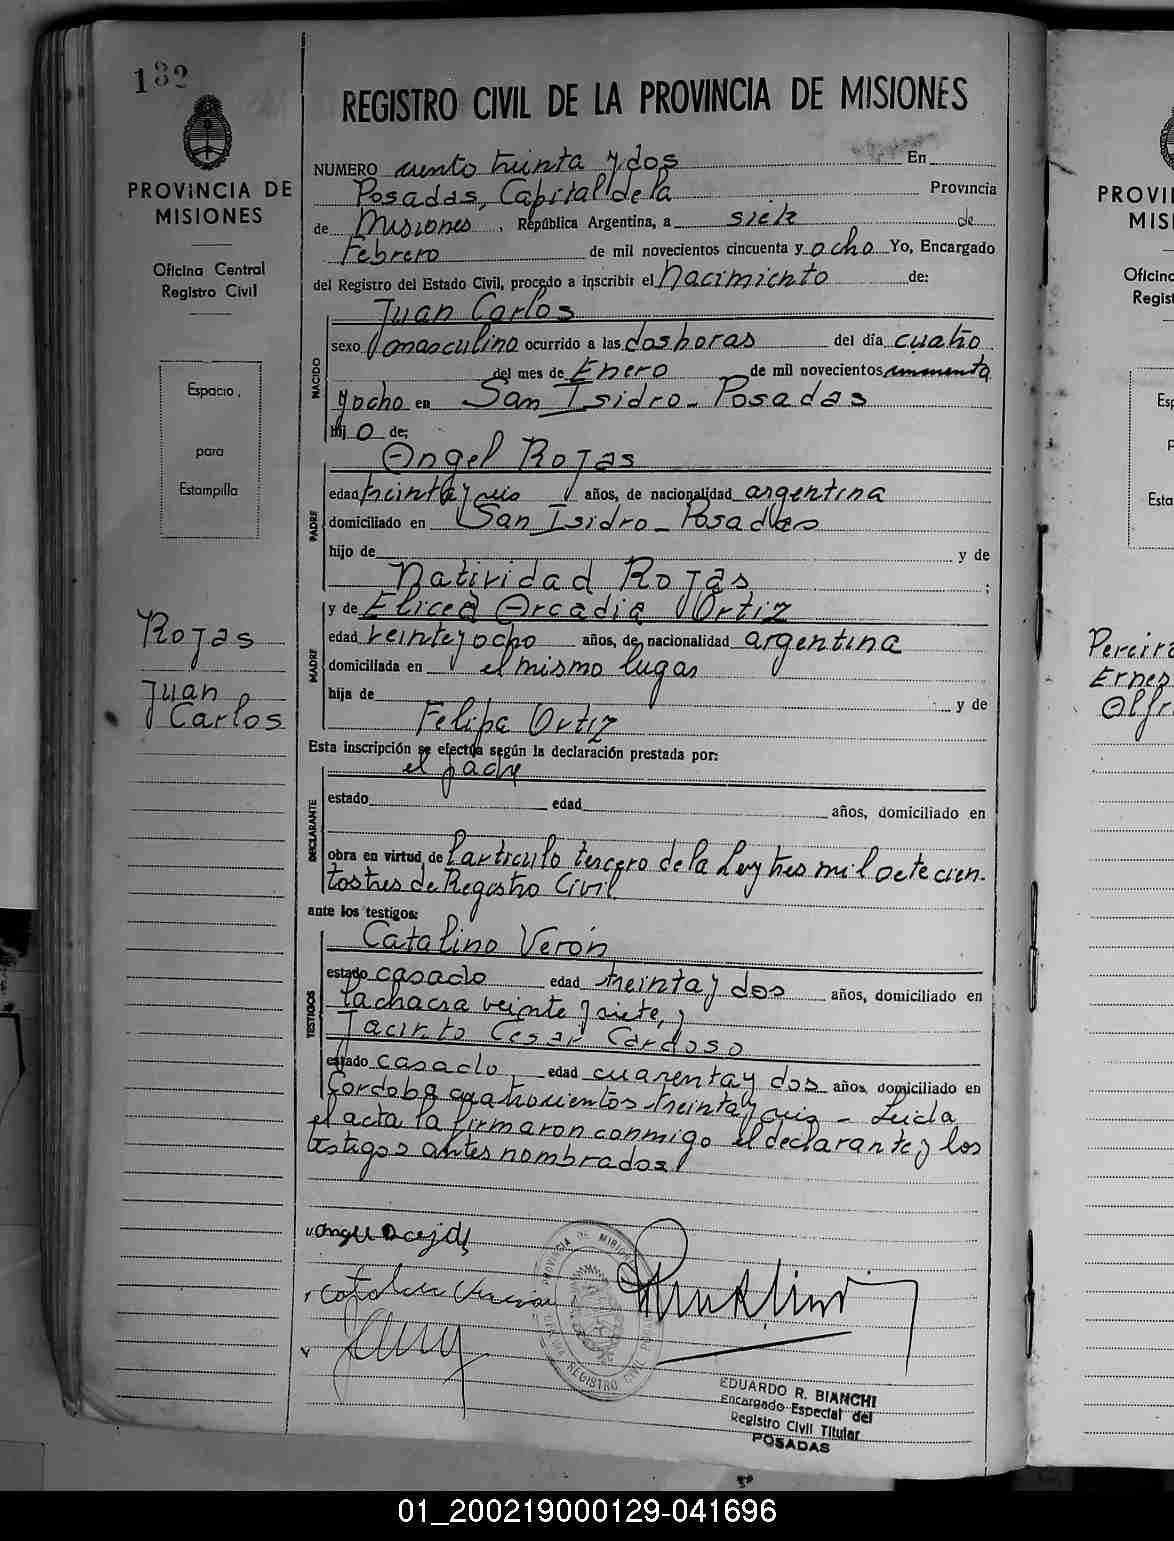 132
PROVINCIA DE
MISIONES
Oficina Central
Registro Civil
Espacio
para
Estampilla
Rojas
Juan
Carlos
REGISTRO CIVIL DE LA PROVINCIA DE MISIONES
NUMERO ciento treinta y dos En
Posadas, Capital de la Provincia
de Misiones, República Argentina, a siete de
Febrero de mil novecientos cincuenta y ocho Yo, Encargado
del Registro del Estado Civil, procedo a inscribir el Nacimiento de:
Juan Carlos
NACIDO
sexo masculino ocurrido a las dos horas del día cuatro
del mes de Enero de mil novecientos cincuenta
y ocho en San Isidro - Posadas
hijo de;
Angel Rojas
PADRE
edad treinta y seis años, de nacionalidad argentina
domiciliado en San Isidro - Posadas
hijo de y de
Natividad Rojas ;
y de Elicea Arcadia Ortiz
MADRE
edad veinte y ocho años, de nacionalidad argentina
domiciliada en el mismo lugar
hija de y de
Felipa Ortiz
Esta inscripción se efectúa según la declaración prestada por:
el padre
DECLARANTE
estado edad años, domiciliado en
obra en virtud de l'artículo tercero de la Ley tres mil sete cien-
tos tres de Registro Civil
ante los testigos:
Catalino Verón
TESTIGOS
estado casado edad treinta y dos años, domiciliado en
la chacra veinte y siete, y
Jacinto Cesar Cardoso
estado casado edad cuarenta y dos años domiciliado en
Córdoba quatrocientos treinta y seis - Leida
el acta la firmaron conmigo el declarante y los
testigos antes nombrados
PROVINCIA DE MISIONES
REGISTRO CIVIL
EDUARDO R. BIANCHI
Encargado Especial del
Registro Civil Titular
POSADAS
PROVI
MIS
Oficin
Regist
Esp
P
Esta
Pereira
Ernes
Alfr
01_200219000129-041696